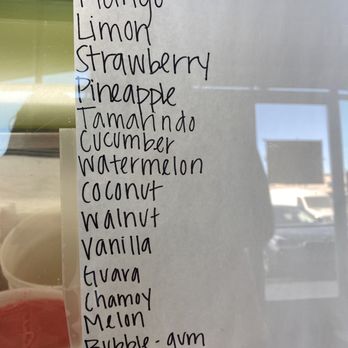 Mango
Limon
Strawberry
Pineapple
Tamarindo
Cucumber
Watermelon
Coconut
Walnut
Vanilla
Guava
Chamoy
Melon
Bubble-gum